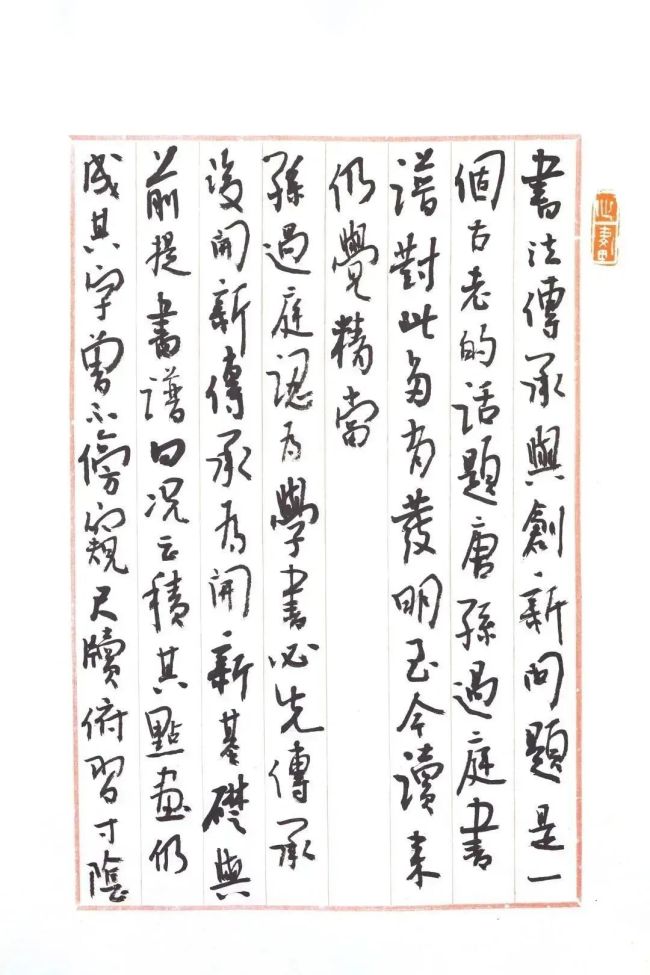 書法傳承與創新問題是一
個古老的話題唐孫過庭書
譜對此多有發明至今讀来
仍覺精當
孫過庭認为學書必先傳承
後開新傳承为開新基礎與
前提書譜曰況云積其點画仍
成其字曾不傍窺尺牘俯習寸陰